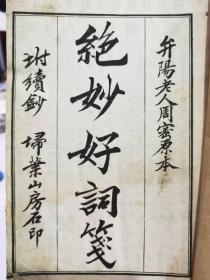 弁陽老人周密原本
絶妙好詞箋
坿續鈔 掃葉山房石印